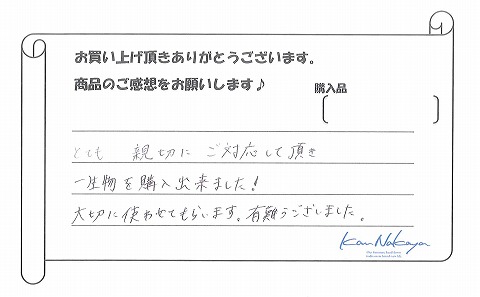 お買い上げ頂きありがとうございます。
商品のご感想をお願いします♪
購入品
とても 親切に ご対応して頂き
一生物を購入出来ました！
大切に使わせてもらいます。有難うございました。
Kan Nakaya